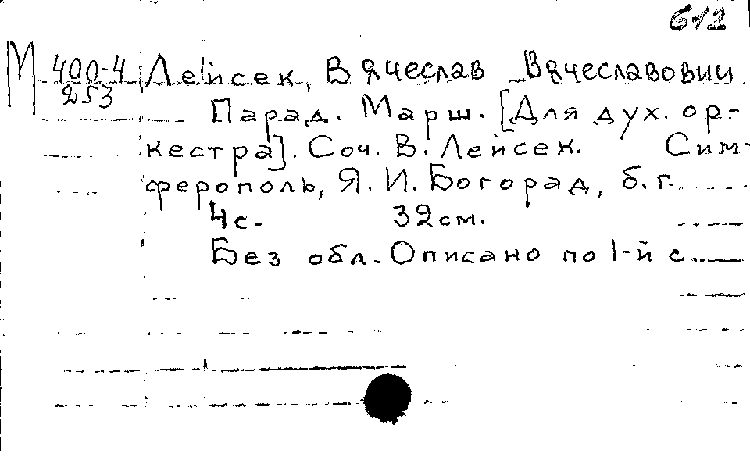 612
М 400-4 Лейсек, Вячеслав Вячеславович
253
Парад. Марш. [Для дух. ор-
кестра]. Соч. В. Лейсек. Сим-
ферополь, Я. И. Богорад, б. г.
4 с. 32 см.
Без обл. Описано по 1-й с.